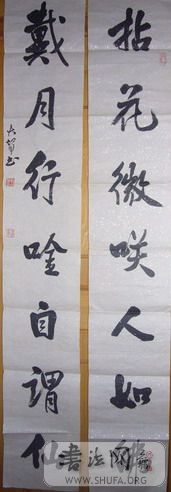 拈花微咲人如佛
戴月行唫自謂仙
书法网
WWW.SHUFA.ORG